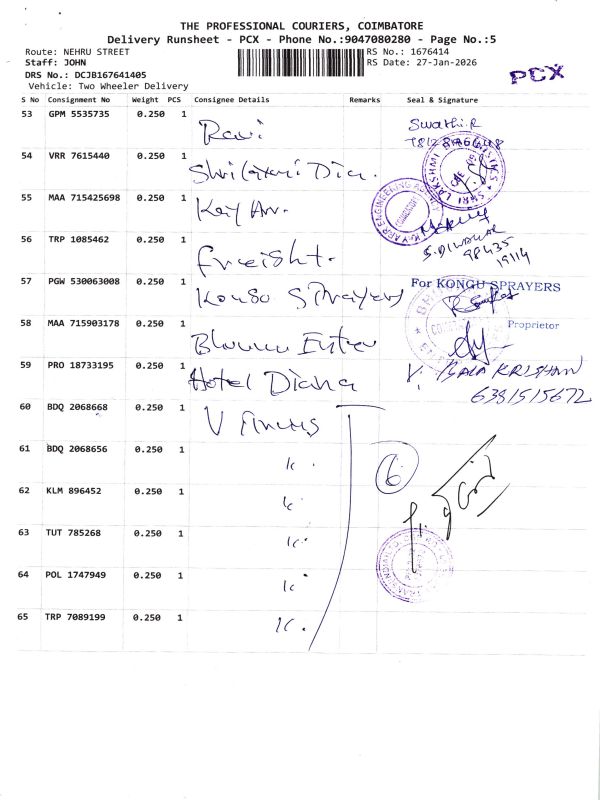 THE PROFESSIONAL COURIERS, COIMBATORE
Delivery Runsheet - PCX - Phone No.:9047080280 - Page No.:5
Route: NEHRU STREET RS No.: 1676414
Staff: JOHN RS Date: 27-Jan-2026
DRS No.: DCJB167641405
PCX
Vehicle: Two Wheeler Delivery
S No Consignment No Weight PCS Consignee Details Remarks Seal & Signature
53 GPM 5535735 0.250 1 Ravi Swathi.R
54 VRR 7615440 0.250 1 SHRI LAKSHMI
55 MAA 715425698 0.250 1
56 TRP 1085462 0.250 1 Freight. 98435
19114
57 PGW 530063008 0.250 1 Sprayers For KONGU SPRAYERS
Proprietor
58 MAA 715903178 0.250 1
59 PRO 18733195 0.250 1 Hotel Diana BALA KRISHAN
6381515672
60 BDQ 2068668 0.250 1 V
61 BDQ 2068656 0.250 1 6
62 KLM 896452 0.250 1
63 TUT 785268 0.250 1
64 POL 1747949 0.250 1
65 TRP 7089199 0.250 1